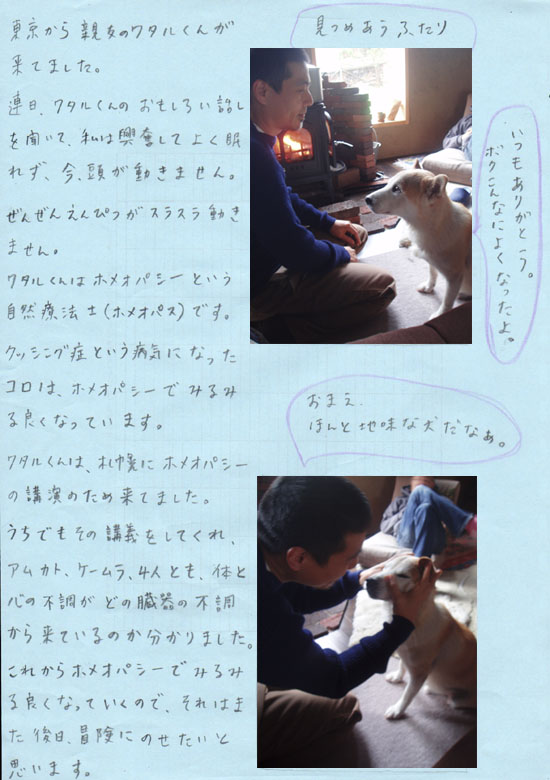 東京から親友のワタルくんが
来てました。
連日、ワタルくんのおもしろい話し
を聞いて、私は興奮してよく眠
れず、今、頭が動きません。
ぜんぜんえんぴつがスラスラ動き
ません。
ワタルくんはホメオパシーという
自然療法士(ホメオパス)です。
クッシング症という病気になった
コロは、ホメオパシーでみるみ
る良くなっています。
ワタルくんは、札幌にホメオパシー
の講演のため来てました。
うちでもその講義をしてくれ、
アム カト、ケームラ、4人とも、体と
心の不調がどの臓器の不調
から来ているのか分かりました。
これからホメオパシーでみるみ
る良くなっていくので、それはま
た後日、冒険にのせたいと
思います。
見つめあうふたり
いつもありがとう。
ボクこんなによくなったよ。
おまえ、
ほんと地味な犬だなぁ。